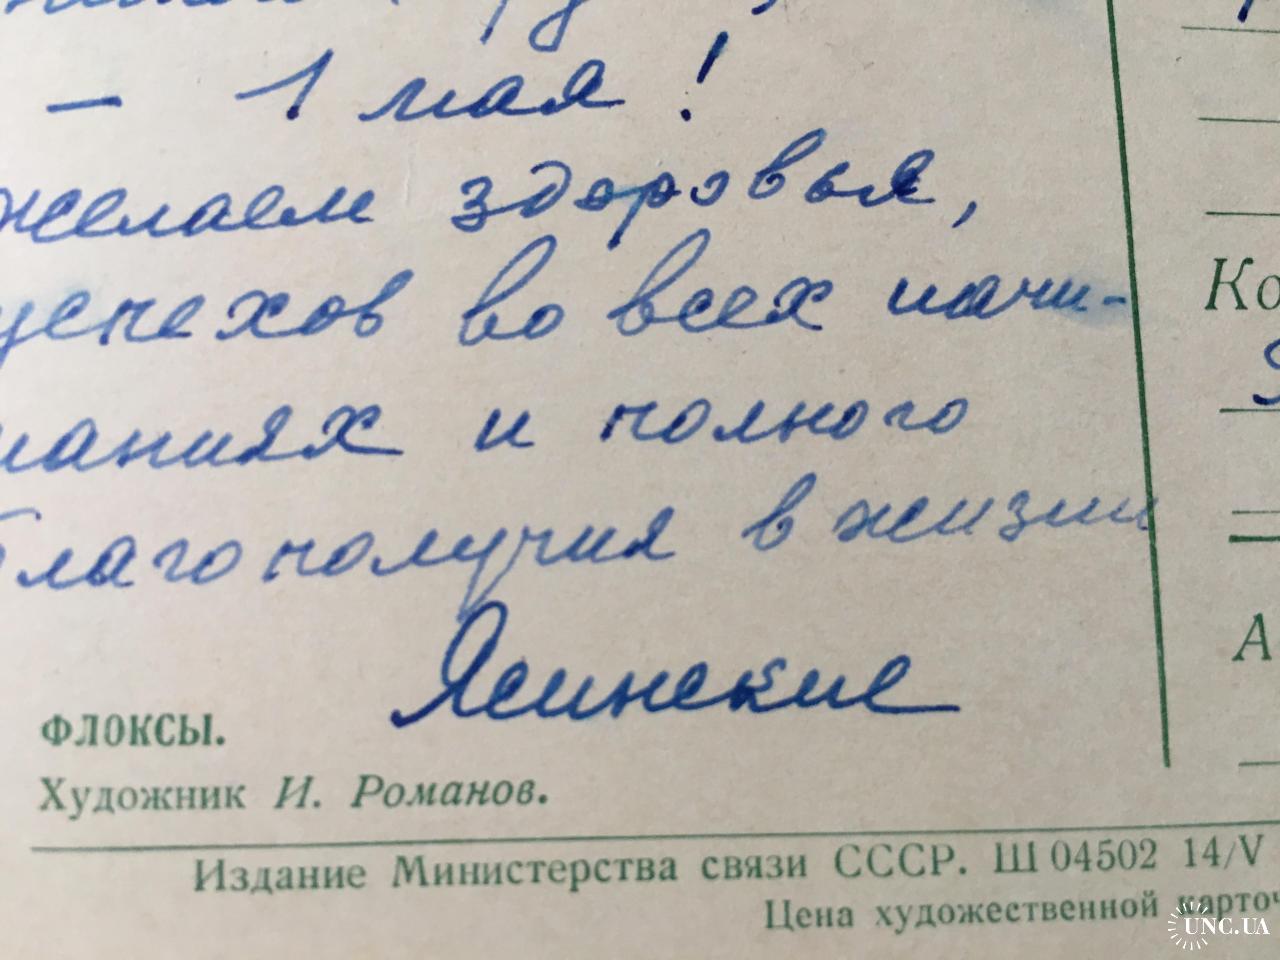 — 1 мая!
желаем здоровья,
успехов во всех начи-
наниях и полного
благополучия в жизни
Ясинские
ФЛОКСЫ.
Художник И. Романов.
Издание Министерства связи СССР. Ш 04502 14/V
Цена художественной карточ
Ко
А
UNC.UA